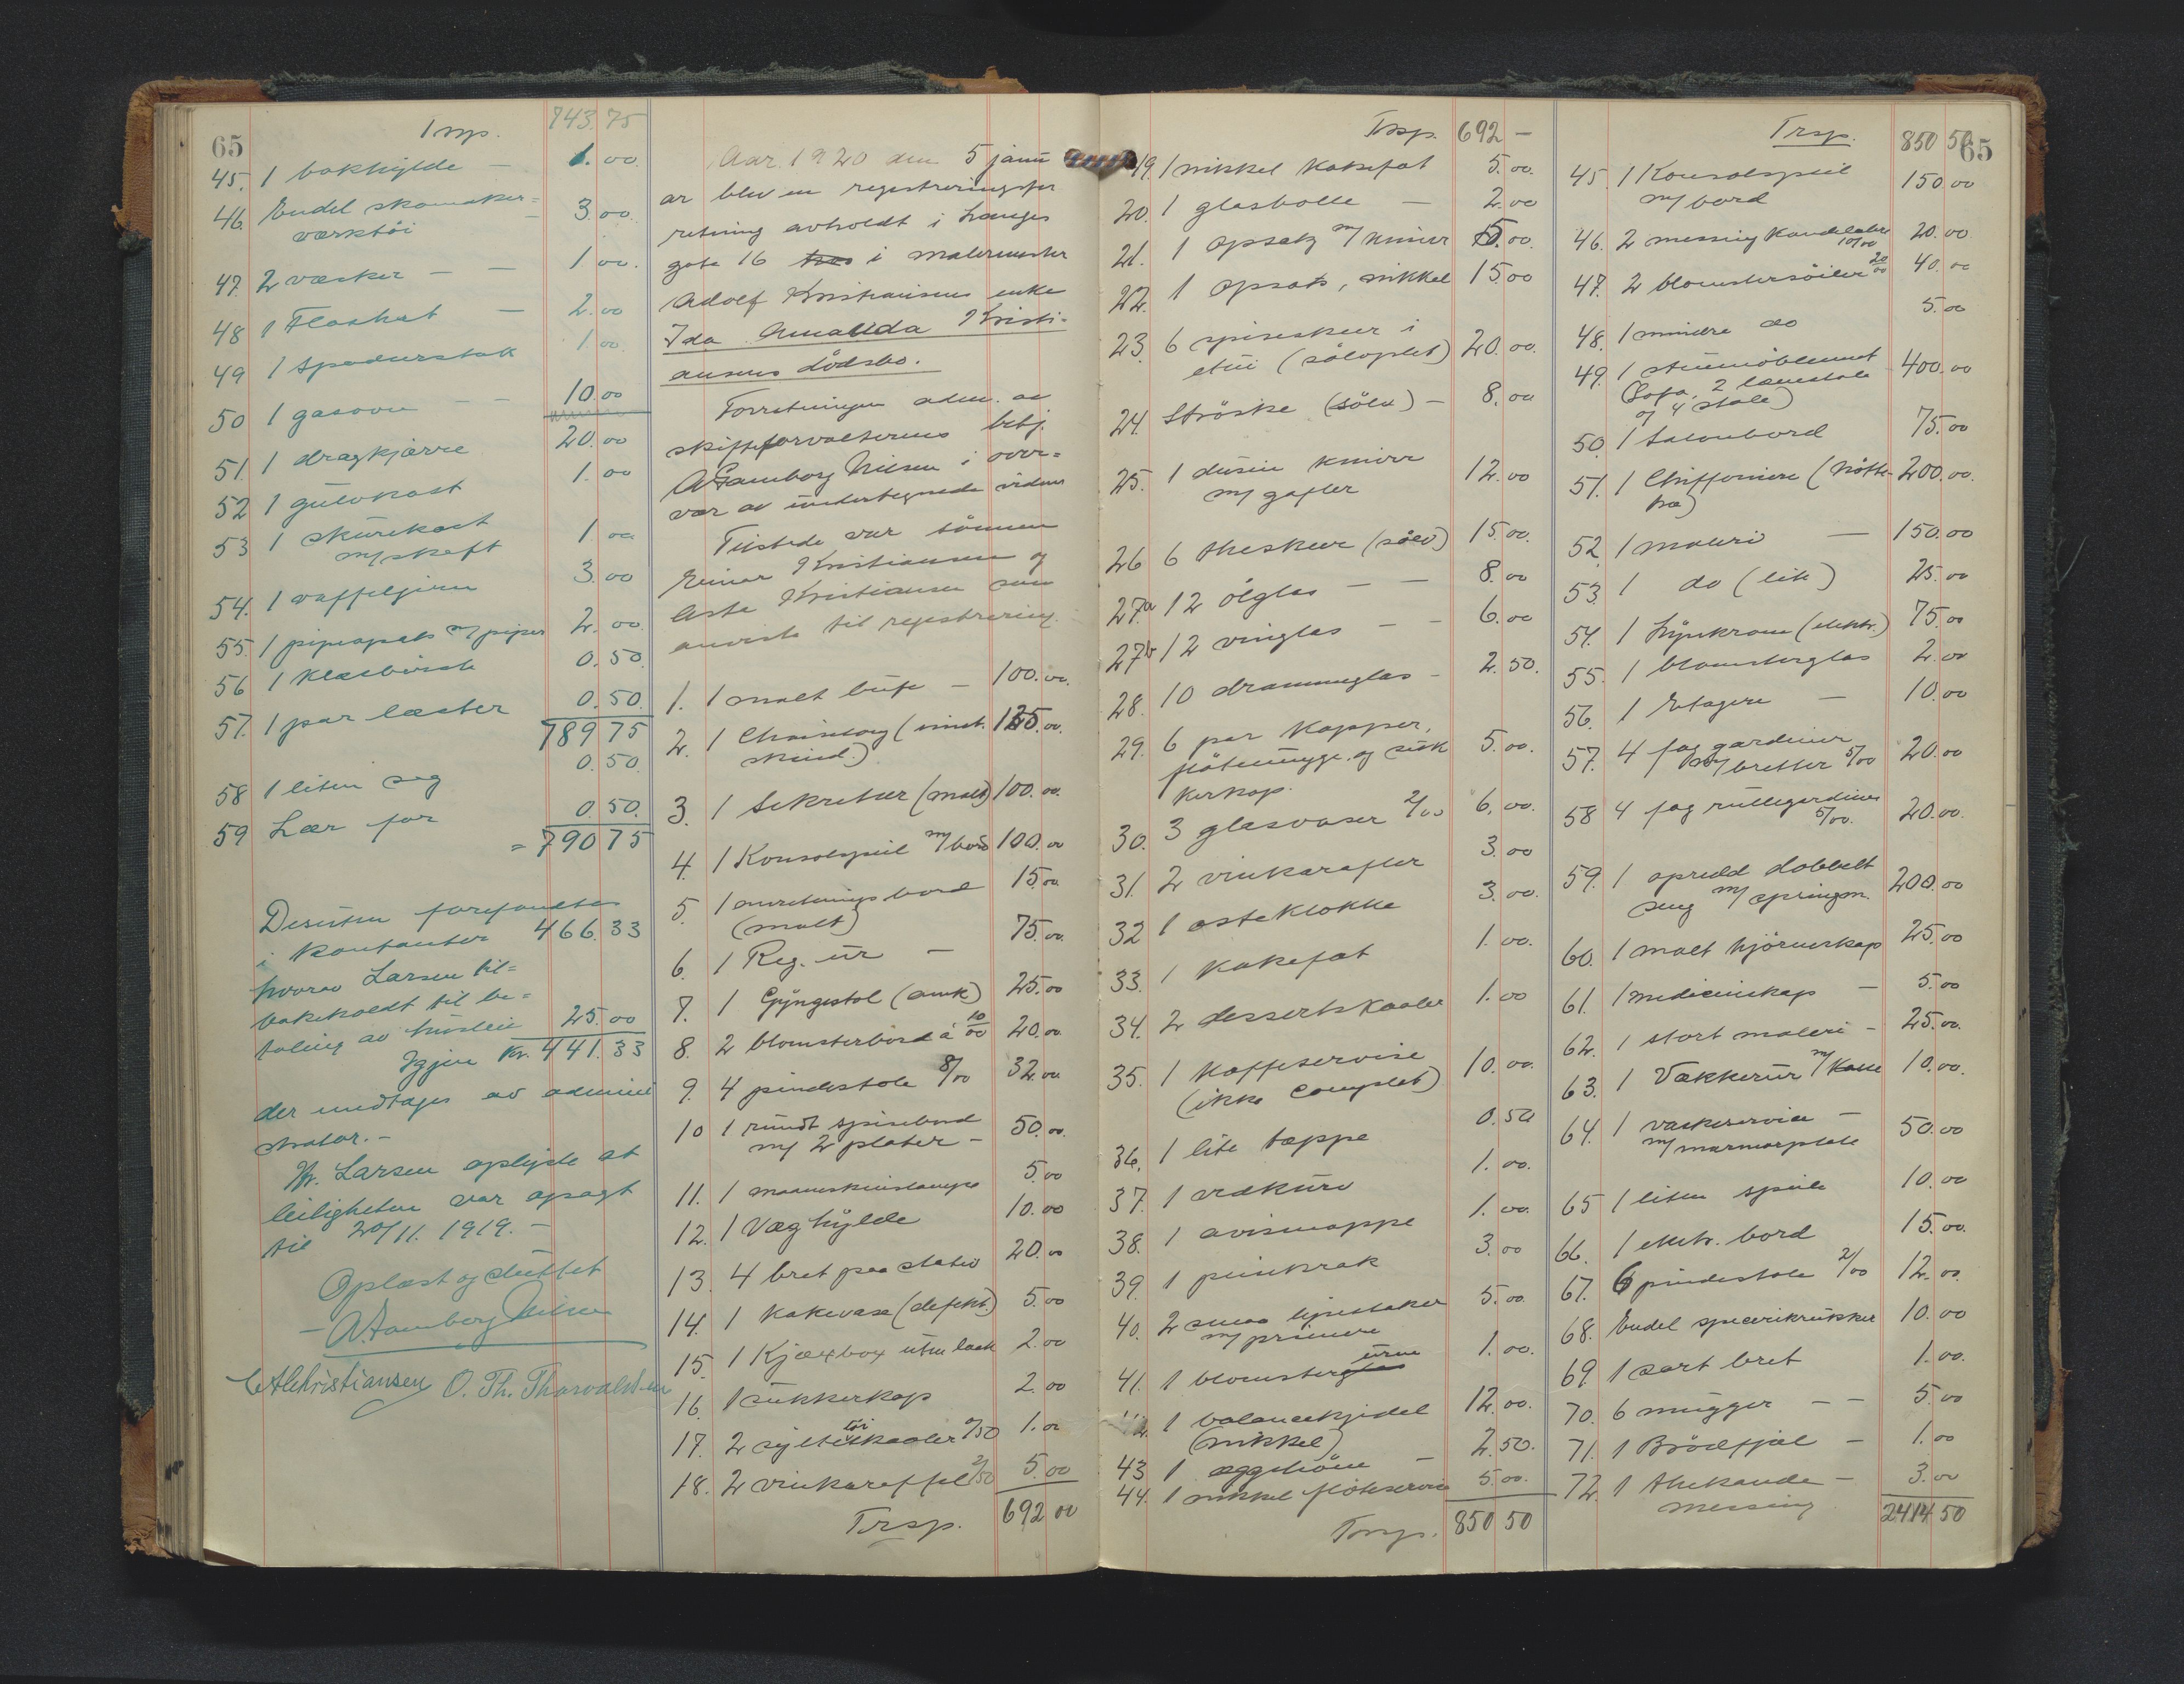 65
Trsp. 743.75
45. 1 bokhylde — 1.00
46. Endel skomaker=
værktöi — 3.00
47. 2 væsker — — 1.00
48 1 Floshat — 2.00
49 1 spaderstok 1.00
50 1 gasovn — — 10.00
51. 1 dragkjærre 20.00
52 1 gulvkost 1.00
53 1 skurekost
m/ skaft 1.00
54. 1 vaffeljern 3.00
55. 1 pipeopsats m/ piper 2.00
56 1 klæsbörste 0.50
57. 1 par læster 0.50
789 75
58 1 liten sag 0.50
59 Lær for 0.50
= 790 75
Desuten forefandtes
i kontanter 466.33
hvorav Larsen til=
bakeholdt til be=
taling av husleie 25.00
Igjen Kr. 441.33
der mottages av admini
strator. —
Hr. Larsen oplyste at
leiligheten var opsagt
til 20/11. 1919. —
Oplæst og sluttet
A. Hamborg Nilsen
E A Christiansen O. Th. Thorvaldsen
Aar 1920 den 5 janu
ar blev en registreringsfor
retning avholdt i Langes
gate 16 hos i malermester
Adolf Kristiansens enke
Ida Amalida Kristi-
ansens dödsbo.
Forretningen adm. av
skifteforvalterens betj.
A Hamborg Nilsen i over=
vær av undertegnede vidner
Tilstede var sönnen
Einar Kristiansen og
Asta Kristiansen som
anviste til registrering.
1. 1 malt bufe — 100.00
2. 1 Chaiselong (imit.
skind.) 125.00
3. 1 Sekretær (malt) 100.00
4. 1 Konsolspeil m/ bord 100.00
5. 1 anretningsbord
(malt) 15.00
6. 1 Reg. ur — 75.00
7. 1 Gyngestol (amk) 25.00
8. 2 blomsterbord à 10/00 20.00
9. 4 pindestole 8/00 32.00
10 1 rundt spisebord
m/ 2 plater — 50.00
11. 1 maaneskinslampe 5.00
12. 1 Væghylde 10.00
13. 4 bret paa stativ 20.00
14. 1 kakevase (defekt.) 5.00
15. 1 Kjæxbox uten lock 2.00
16. 1 sukkerkop 2.00
17. 2 syltetöiskaaler 0/50 1.00
18. 2 vinkaraffel 2/50 5.00
Trsp. 692 00
Trsp. 692 —
19. 1 nikkel kakefat 5.00
20. 1 glasbolle — 2.00
21. 1 opsats m/ kniver 5.00
22. 1 opsats, nikkel 15.00
23. 6 spiseskeer i
etui (sölvplet) 20.00
24. Ströske (sölv) — 8.00
25. 1 dusin kniver
m/ gafler 12.00
26 6 theskeer (sölv) 15.00
27a 12 ölglas — — 8.00
27b 12 vinglas — — 6.00
28. 10 dramuglas — 2.50
29. 6 par kopper,
flötemugge og suk
kerkop. 5.00
30. 3 glasvaser 2/00 6.00
31. 2 vinkarafler 3.00
32 1 osteklokke 3.00
33. 1 kakefat 1.00
34. 2 dessertskaaler 1.00
35. 1 kaffeservise
(ikke complet) 10.00
36. 1 lite tæppe 0.50
37. 1 vedkurv 1.00
38. 1 avismappe 1.00
39. 1 peiskrak 3.00
40. 2 smaa lysestaker
m/ prismer 5.00
41. 1 blomsterglas urne 1.00
1 balancekjedel
(nikkel) 12.00
43 1 æggeström — 2.50
44. 1 nikkel flöteservise 5.00
Trsp. 850 50
Trsp. 850 50
65
45. 1 Konsolspeil
m/ bord 150.00
46. 2 messing kandelaber 10/00 20.00
47. 2 blomstersöiler 20/00 40.00
48. 1 mindre do 5.00
49. 1 stuemöblement
(Sofa, 2 lænestole
og 4 stole) 400.00
50. 1 Salonbord 75.00
51. 1 Chiffoniere (nötte-
træ) 200.00
52. 1 maleri — 150.00
53. 1 do (lite) 25.00
54. 1 Lysekrone (elektr.) 75.00
55. 1 blomsterglas 2.00
56. 1 Etagere — 10.00
57. 4 fag gardiner
m/ bretter 5/00 20.00
58 4 fag rullegardiner
5/00. 20.00
59. 1 opredd dobbelt
seng m/ springm. 200.00
60. 1 malt hjörneskap 25.00
61. 1 medicinskap — 5.00
62. 1 stort maleri — 25.00
63. 1 Vækkerur m/ kasse 10.00
64. 1 vaskeservise —
m/ marmorplate 50.00
65 1 liten speile 10.00
66. 1 ekstr. bord 15.00
67. 6 pindestole 2/00 12.00
68. Endel specerikrukker 10.00
69. 1 sort bret 1.00
70. 6 mugger — — 5.00
71. 1 Brödfjæl — 1.00
72. 1 thekande —
messing 3.00
2414 50